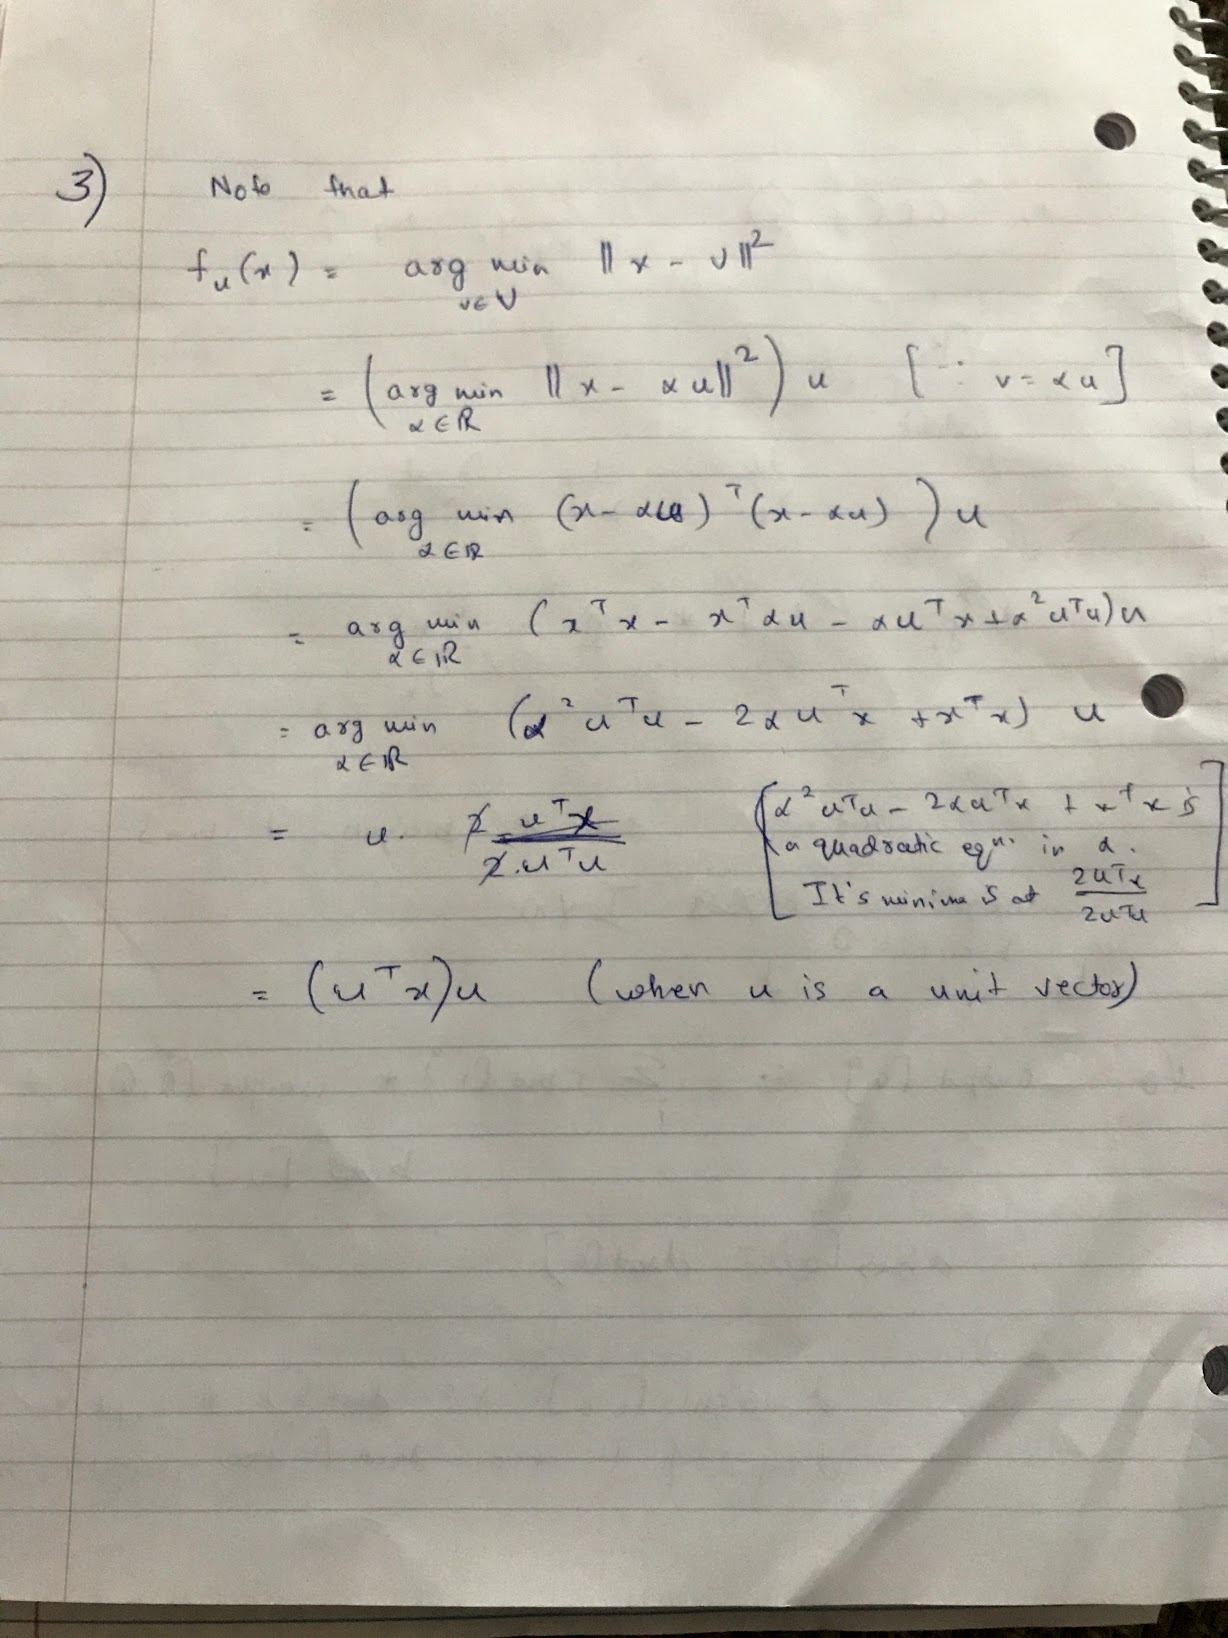 3) Note that
f_u(x) = arg min_{v∈V} ‖x - v‖²
= (arg min_{α∈ℝ} ‖x - αu‖²) u [∵ v = αu]
= (arg min_{α∈ℝ} (x - αu)ᵀ(x - αu)) u
= arg min_{α∈ℝ} (xᵀx - xᵀαu - αuᵀx + α²uᵀu) u
= arg min_{α∈ℝ} (α²uᵀu - 2αuᵀx + xᵀx) u
= u. 2 uᵀx / 2.uᵀu [α²uᵀu - 2αuᵀx + xᵀx is
a quadratic eqn. in α.
It's minima is at 2uᵀx / 2uᵀu]
= (uᵀx)u (when u is a unit vector)